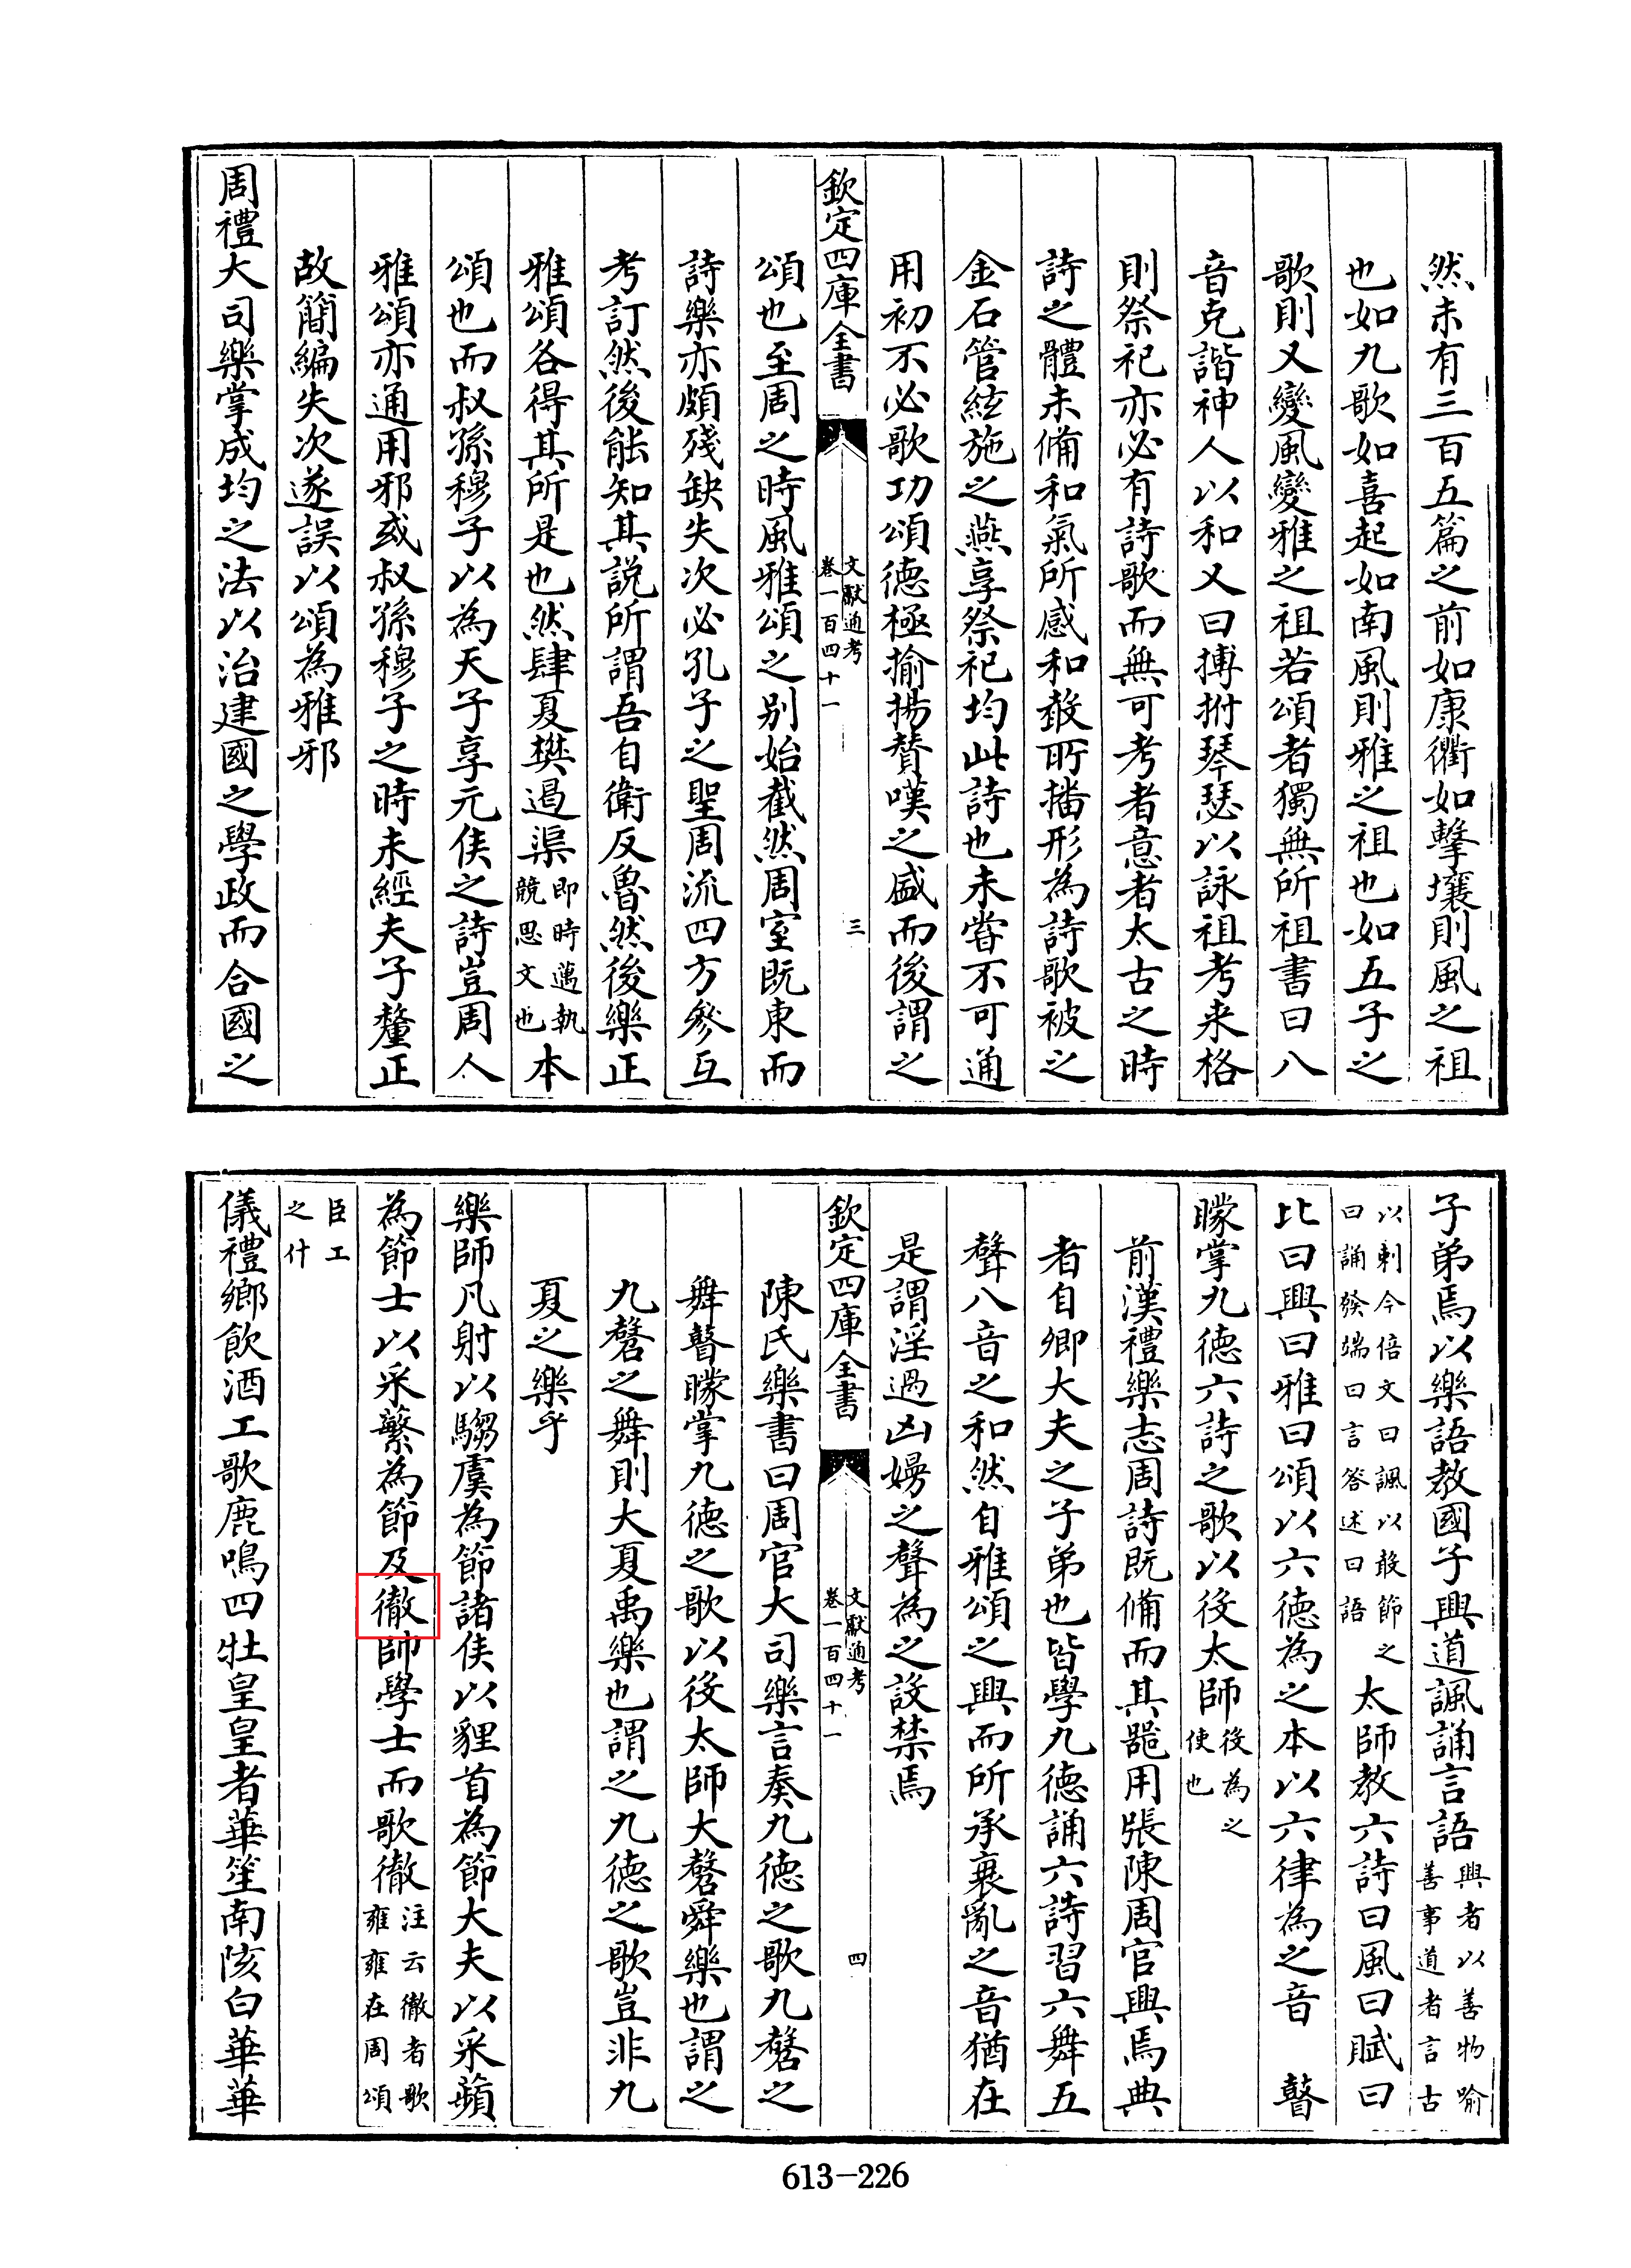 然未有三百五篇之前如康衢如擊壤則風之祖
也如九歌如喜起如南風則雅之祖也如五子之
歌則又變風變雅之祖若頌者獨無所祖書曰八
音克諧神人以和又曰搏拊琴瑟以詠祖考来格
則祭祀亦必有詩歌而無可考者意者太古之時
詩之體未備和氣所感和聲所播形為詩歌被之
金石管絃施之燕享祭祀均此詩也未嘗不可通
用初不必歌功頌德極揄揚賛嘆之盛而後謂之
欽定四庫全書
文獻通考
卷一百四十一
三
頌也至周之時風雅頌之别始截然周室既東而
詩樂亦頗殘缺失次必孔子之聖周流四方參互
考訂然後能知其説所謂吾自衛反魯然後樂正
雅頌各得其所是也然肆夏樊遏渠即時邁執
競思文也本
頌也而叔孫穆子以為天子享元侯之詩豈周人
雅頌亦通用邪或叔孫穆子之時未經夫子釐正
故簡編失次遂誤以頌為雅邪
周禮大司樂掌成均之法以治建國之學政而合國之
子弟焉以樂語教國子興道諷誦言語興者以善物喻
善事道者言古
以剴今倍文曰諷以敢節之
曰誦發端曰言答述曰語太師教六詩曰風曰賦曰
比曰興曰雅曰頌以六徳為之本以六律為之音 瞽
矇掌九徳六詩之歌以役太師役為之
使也
前漢禮樂志周詩既備而其器用張陳周官興焉典
者自卿大夫之子弟也皆學九徳誦六詩習六舞五
聲八音之和然自雅頌之興而所承衰亂之音猶在
是謂淫過凶嫚之聲為之設禁焉
欽定四庫全書
文獻通考
卷一百四十一
四
陳氏樂書曰周官大司樂言奏九徳之歌九磬之
舞瞽矇掌九徳之歌以役太師大磬舜樂也謂之
九磬之舞則大夏禹樂也謂之九徳之歌豈非九
夏之樂乎
樂師凡射以騶虞為節諸侯以貍首為節大夫以采蘋
為節士以采蘩為節及徹帥學士而歌徹注云徹者歌
雍雍在周頌
臣工
之什
儀禮鄉飲酒工歌鹿鳴四牡皇皇者華笙南陔白華華
613-226